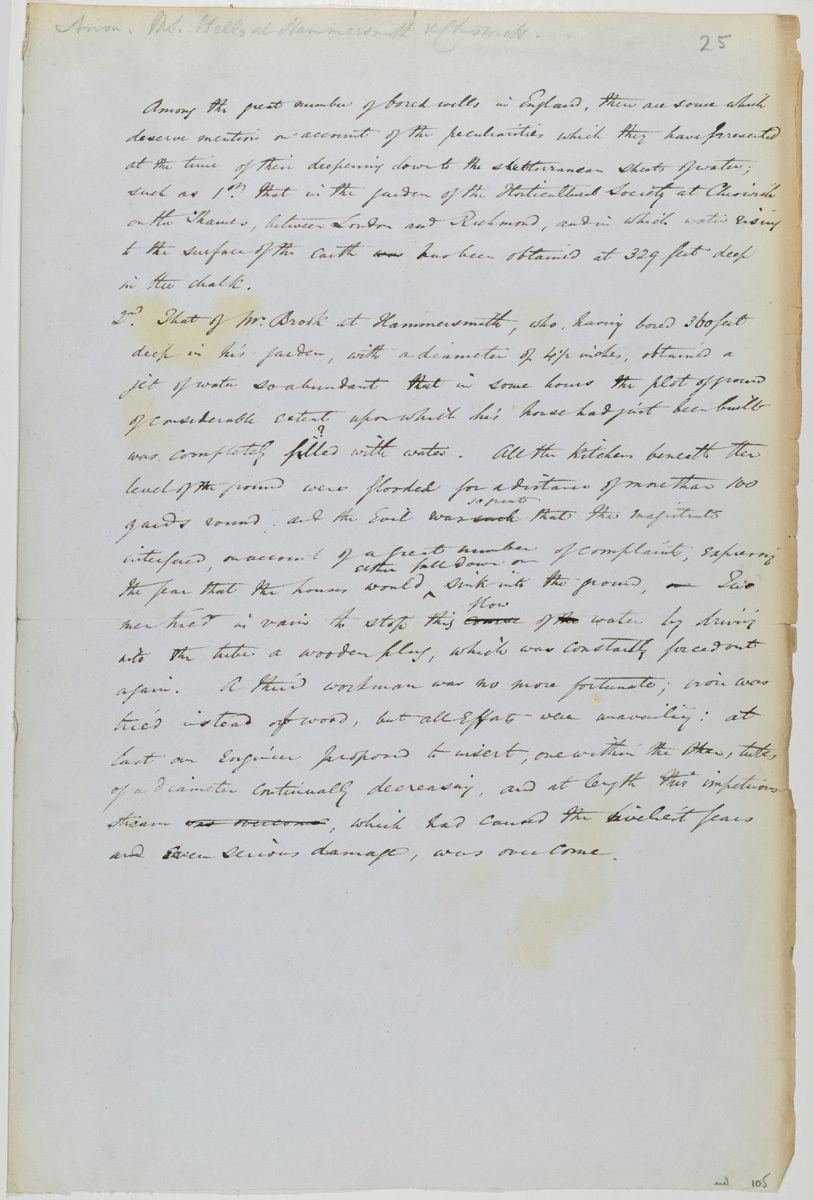 Anon. MS. Wells at Hammersmith & Chiswick.
25
Among the great number of bored wells in England, there are some which
deserve mention on account of the peculiarities which they have presented
at the time of their deepening down to the subterranean sheets of water;
such as 1st. That in the garden of the Horticultural Society at Chiswick
on the Thames, between London and Richmond, and in which water rising
to the surface of the earth was has been obtained at 329 feet deep
in the chalk.
2nd. That of Mr. Brook at Hammersmith, who, having bored 360 feet
deep in his garden, with a diameter of 4½ inches, obtained a
jet of water so abundant that in some hours the plot of ground
of considerable extent upon which his house had just been built
?
was completely filled with water. All the Kitchens beneath the
level of the ground were flooded for a distance of more than 100
so great
yards round, and the Evil was such that the magistrate
interfered, on account of a great number of complaints, expressing
either fall down or
the fear that the houses would sink into the ground, Two
flow
men tried in vain to stop this course of the water by driving
into the tube a wooden plug, which was constantly forced out
again. A third workman was no more fortunate; iron was
tried instead of wood, but all Efforts were unavailing: at
last an Engineer proposed to insert, one within the other, tubes
of a diameter continually decreasing, and at length this impetuous
stream was overcome, which had caused the liveliest fears
and even serious damage, was overcome.
105